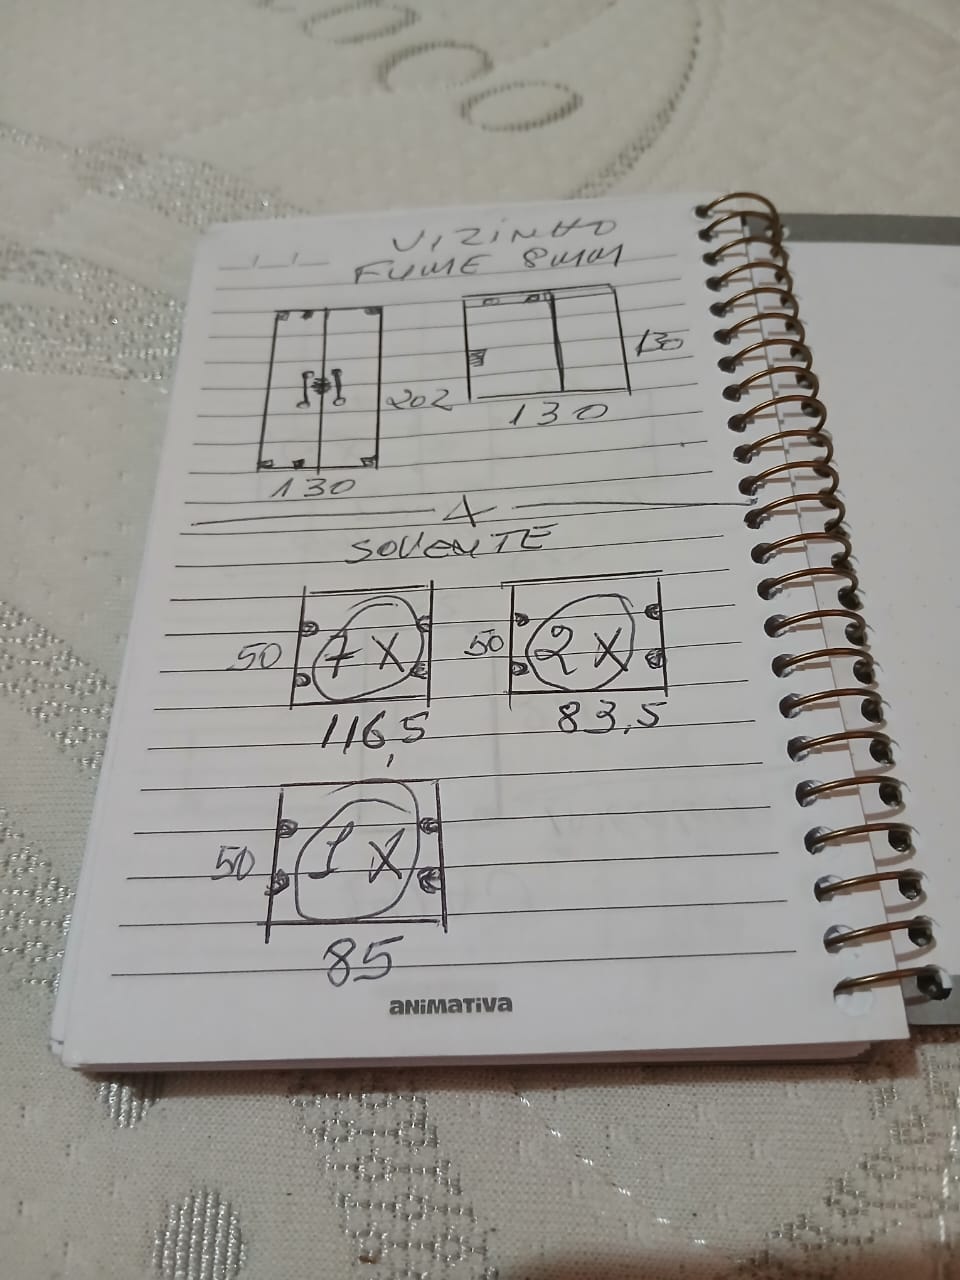 VIZINHO
FUME 8MM
202
130
130
130
50
7 X
116,5
50
2 X
83,5
50
1 X
85
ANiMATiVA